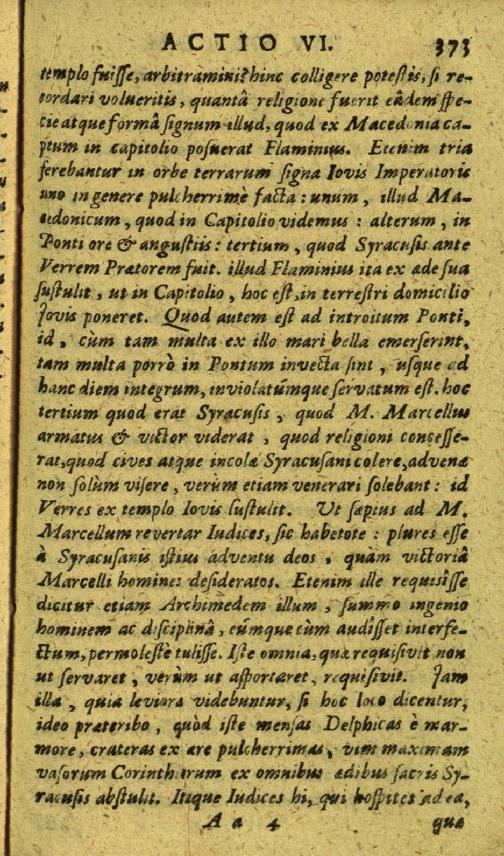 ACTIO VI. 373
templo fuisse, arbitramini? hinc colligere potestis, si re-
cordari volueritis, quantâ religione fuerit eâdem spe-
cie atque formâ signum illud, quod ex Macedonia ca-
ptum in capitolio posuerat Flaminius. Etenim tria
ferebantur in orbe terrarum signa Iovis Imperatoris
uno in genere pulcherrimè facta: unum, illud Ma-
cedonicum, quod in Capitolio videmus: alterum, in
Ponti ore & angustiis: tertium, quod Syracusis ante
Verrem Prætorem fuit. illud Flaminius ita ex æde sua
sustulit, ut in Capitolio, hoc est, in terrestri domicilio
Jovis poneret. Quod autem est ad introitum Ponti,
id, cùm tam multa ex illo mari bella emerserint,
tam multa porrò in Pontum invecta sint, usque ad
hanc diem integrum, inviolatúmque servatum est. hoc
tertium quod erat Syracusis, quod M. Marcellus
armatus & victor viderat, quod religioni concesse-
rat, quod cives atque incolæ Syracusani colere, advenæ
non solùm visere, verùm etiam venerari solebant: id
Verres ex templo Iovis sustulit. Ut sæpius ad M.
Marcellum revertar Iudices, sic habetote: plures esse
à Syracusanis istius adventu deos, quàm victoriâ
Marcelli homines desideratos. Etenim ille requisîsse
dicitur etiam Archimedem illum, summo ingenio
hominem ac disciplinâ, eúmque cùm audîsset interfe-
ctum, permolestè tulisse. Iste omnia, quæ requisivit non
ut servaret, verùm ut asportaret, requisivit. Jam
illa, quia leviora videbuntur, si hoc loco dicentur,
ideo præteribo, quòd iste mensas Delphicas è mar-
more, crateras ex ære pulcherrimas, vim maximam
vasorum Corinthiorum ex omnibus ædibus sacris Sy-
racusis abstulit. Itaque Iudices hi, qui hospites ad ea,
A a 4 quæ